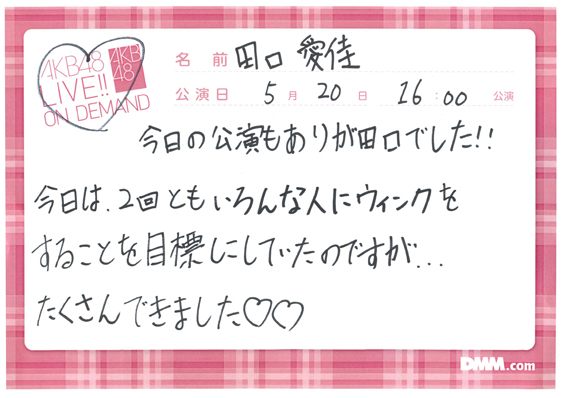 AKB48
LIVE!!
ON DEMAND
AKB
48
名前 田口 愛佳
公演日 5月20日 16:00 公演
今日の公演もありが田口でした!!
今日は、2回ともいろんな人にウィンクを
することを目標にしていたのですが...
たくさんできました♡♡
DMM.com